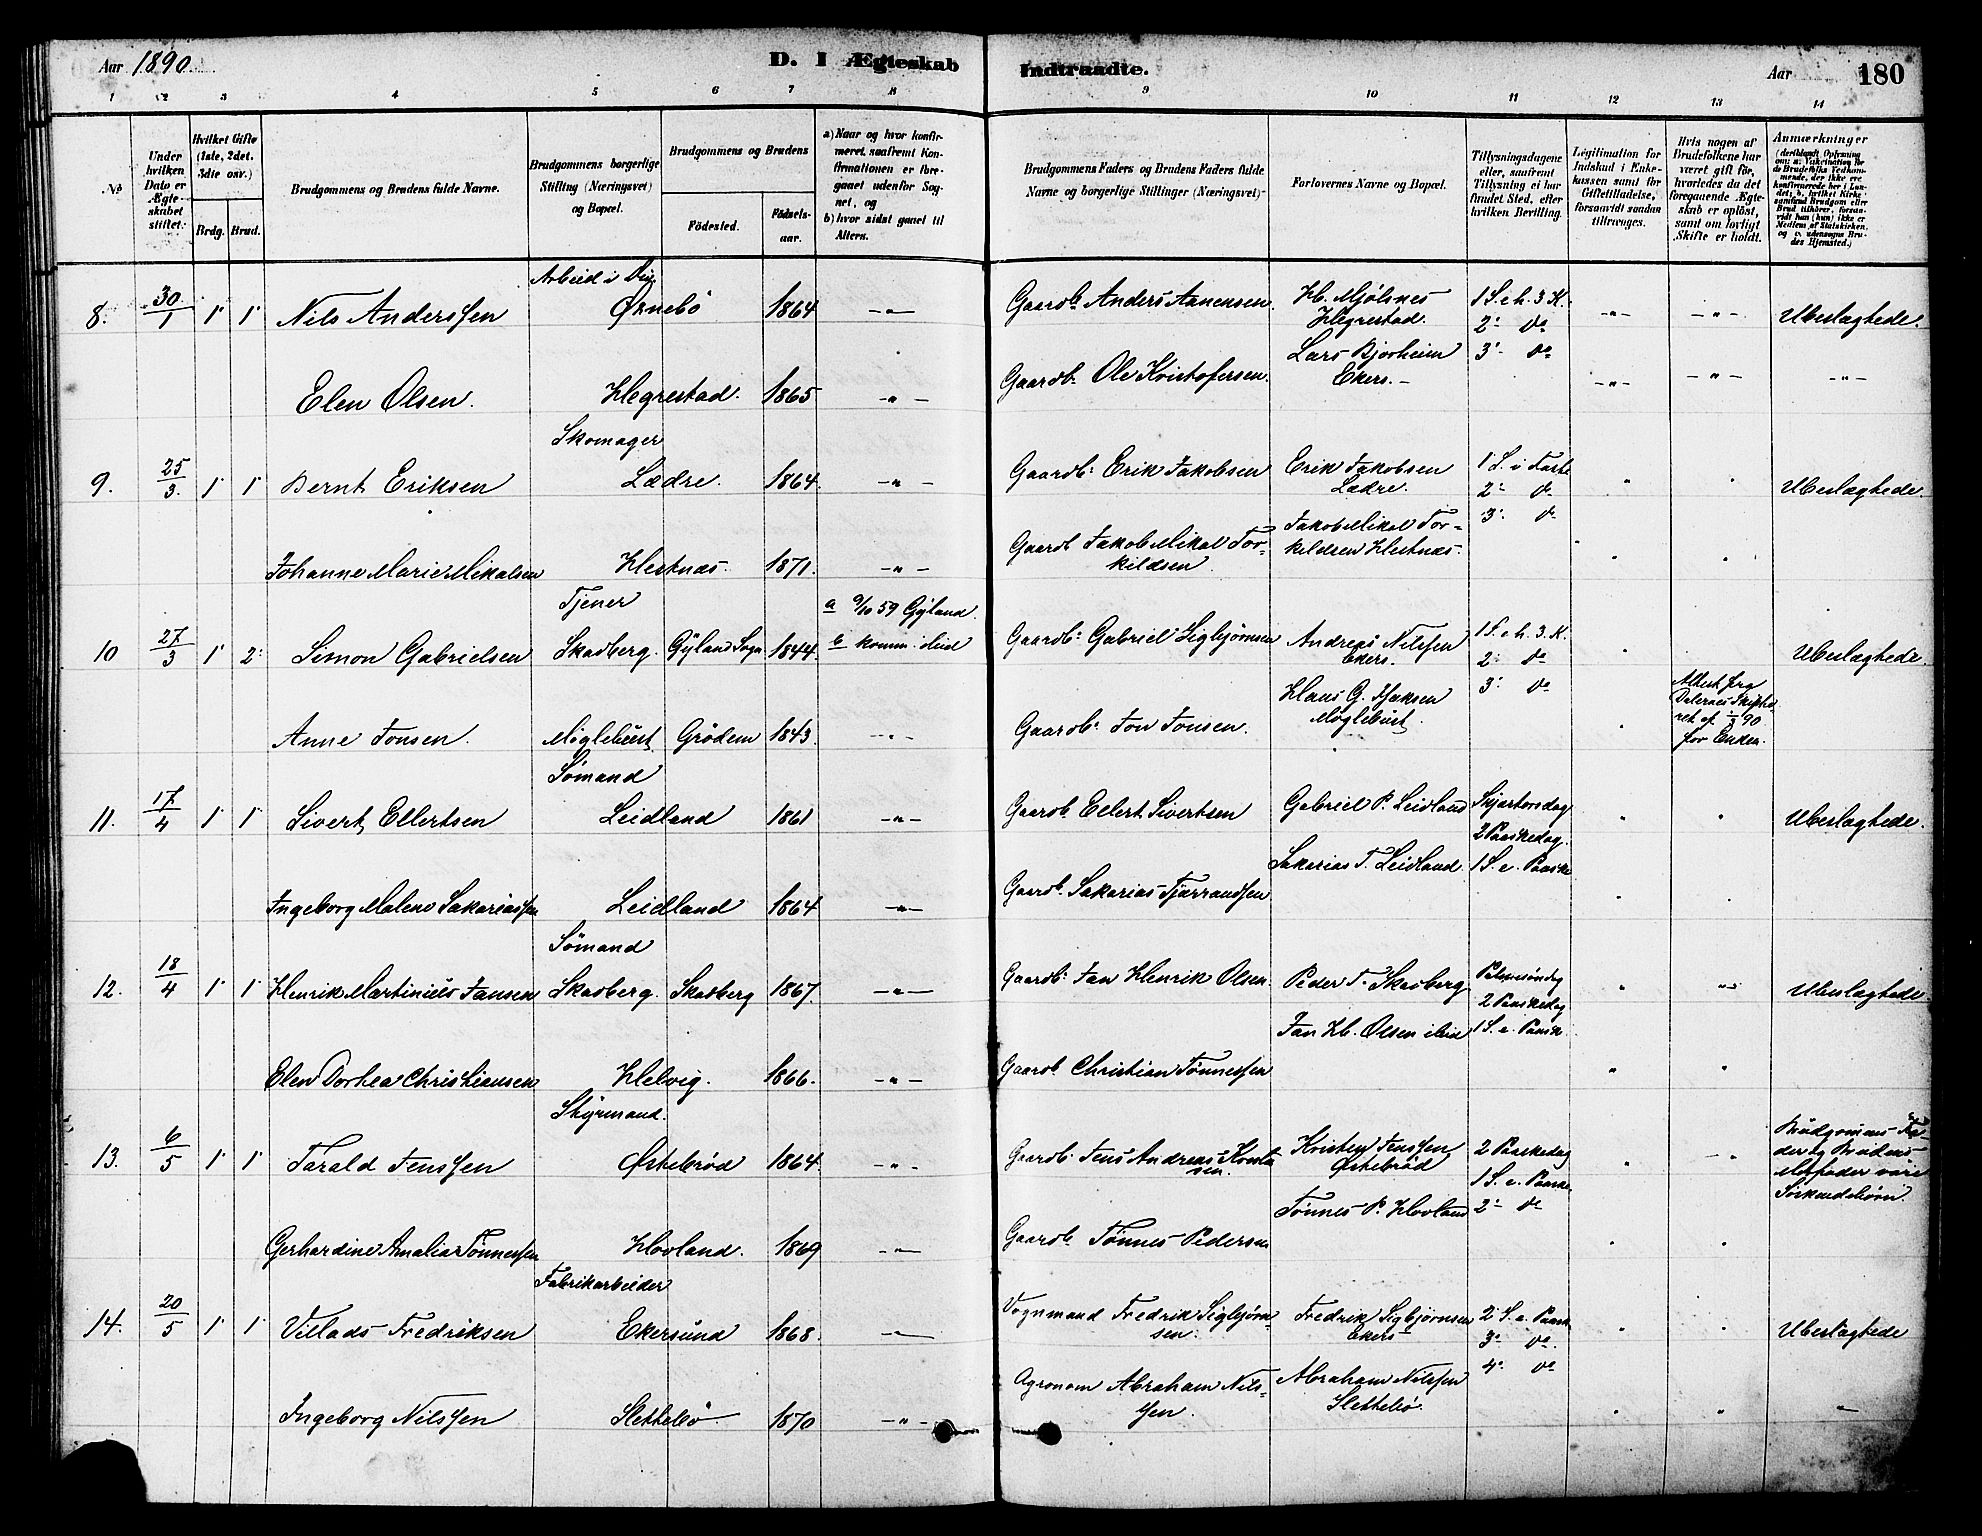 Aar 1890.
D. I Ægteskab Indtraadte.
Aar 180
1 2 3 4 5 6 7 8 9 10 11 12 13 14
No
Under hvilken Dato er Ægteskabet stiftet.
Hvilket Gifte (1ste, 2det, 3die osv.)
Brdg. Brud.
Brudgommens og Brudens fulde Navne.
Brudgommens borgerlige Stilling (Næringsvei) og Bopæl.
Brudgommens og Brudens
Fødested. Fødselsaar.
a) Naar og hvor konfirmeret, saafremt Konfirmationen er foregaaet udenfor Sognet, og
b) hvor sidst gaaet til Alters.
Brudgommens Faders og Brudens Faders fulde Navne og borgerlige Stillinger (Næringsvei)
Forlovernes Navne og Bopæl.
Tillysningsdagene eller, saafremt Tillysning ei har fundet Sted, efter hvilken Bevilling.
Legitimation for Indskud i Enkekassen samt for Giftetilladelse, forsaavidt saadan tiltrænges.
Hvis nogen af Brudefolkene har været gift før, hvorledes da det foregaaende Ægteskab er opløst, samt om lovligt Skifte er holdt.
Anmærkninger
Arbeid i
8. 30/1 1 1 Nils Anderssen Øxnebö 1864 —"— Gaardb: Anders Aanensen. H. Mjölsnes Hegrestad. 1 S. e. h. 3 K. —"— —"— Ubeslægtede.
2: do
Lars Bjorheim Ekers.— 3: do
Elen Olsen. Hegrestad. 1865 —"— Gaardb: Ole Kristofersen. —"— —"— —"—
Skomager
9. 25/3. 1 1 Bernt Eriksen Lædre. 1864. —"— Gaardb: Erik Jakobsen Erik Jakobsen Lædre. 1 S. i Faste " " Ubeslægtede.
2: do
3: do
Johanne Marie Mikalsen Hestnæs. 1871. —"— Gaardb Jakob Mikal Torkildsen Jakob Mikal Torkildsen Hestnæs. " "
Tjener
a 9/10 59 Gyland.
10 27/3 1 2: Simon Gabrielsen Skadberg. Gyland Sogn 1844. b komm. ibid Gaardb: Gabriel Sigbjørnsen Andreas Nilssen Ekers. 1 S. e. h. 3. K. " Ubeslægtede.
2: do
3: do
Anne Jonsen. Möglebüst Grödem 1843. —"— Gaardb: Jon Jonsen. Möglebust. " Attest fra Dalernes Skifteret af 1/3 90 for Enken.
Sömand
11. 17/4 1 1 Sivert Ellertsen Leidland 1861 —"— Gaardb. Ellert Sivertsen Gabriel P. Leidland Skjærtorsdag " " Ubeslægtede.
2 Paaskedag.
Sakarias T. Leidland 1 S. e. Paaske
Ingeborg Malene Sakariassen Leidland 1864 —"— Gaardb. Sakarias Tjærrandsen " "
Sömand
12. 18/4 1 1 Henrik Martinius Jansen Skadberg. Skadberg 1867. —"— Gaardb: Jan Henrik Olsen. Peder T. Skadberg Palmesöndag " " Ubeslægtede.
2 Paaskedag
Jan H. Olsen ibid 1 S. e. Paask.
Elen Dorhea Christiansen Helvig. 1866. —"— Gaardb. Christian Tönnessen " "
Styrmand.
13. 6/5 1 1 Tarald Jenssen Østebröd 1864 —"— Gaardb. Jens Andreas Kristensen. Kristen Jenssen Østebröd 2 Paaskedag " —"— Brudgommens Fader og Brudens Morfader vare Söskendebörn.
1 S. e. Paaske
Tönnes P. Hovland 2: do
Gerhardine Amalia Tönnessen Hovland. 1869 —"— Gaardb. Tönnes Pedersen " "
Fabrikarbeider
14. 20/5 1 1 Villads Fredriksen Ekersund 1868. —"— Vognmand Fredrik Sigbjörnsen. Fredrik Sigbjörnsen Ekers 2 S. e. Paask " " Ubeslægtede
3: do.
4: do
Ingeborg Nilssen Slettebö 1870 —"— Agronom Abraham Nilssen. Abraham Nilssen Slettebö. " " —"—